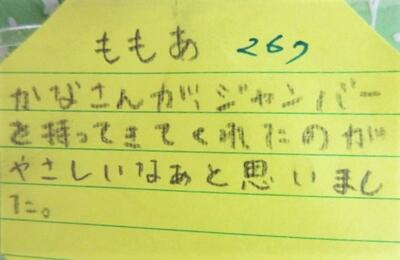 ももあ 267
かなさんが、ジャンバー
を持ってきてくれたのが
やさしいなあと思いまし
た。